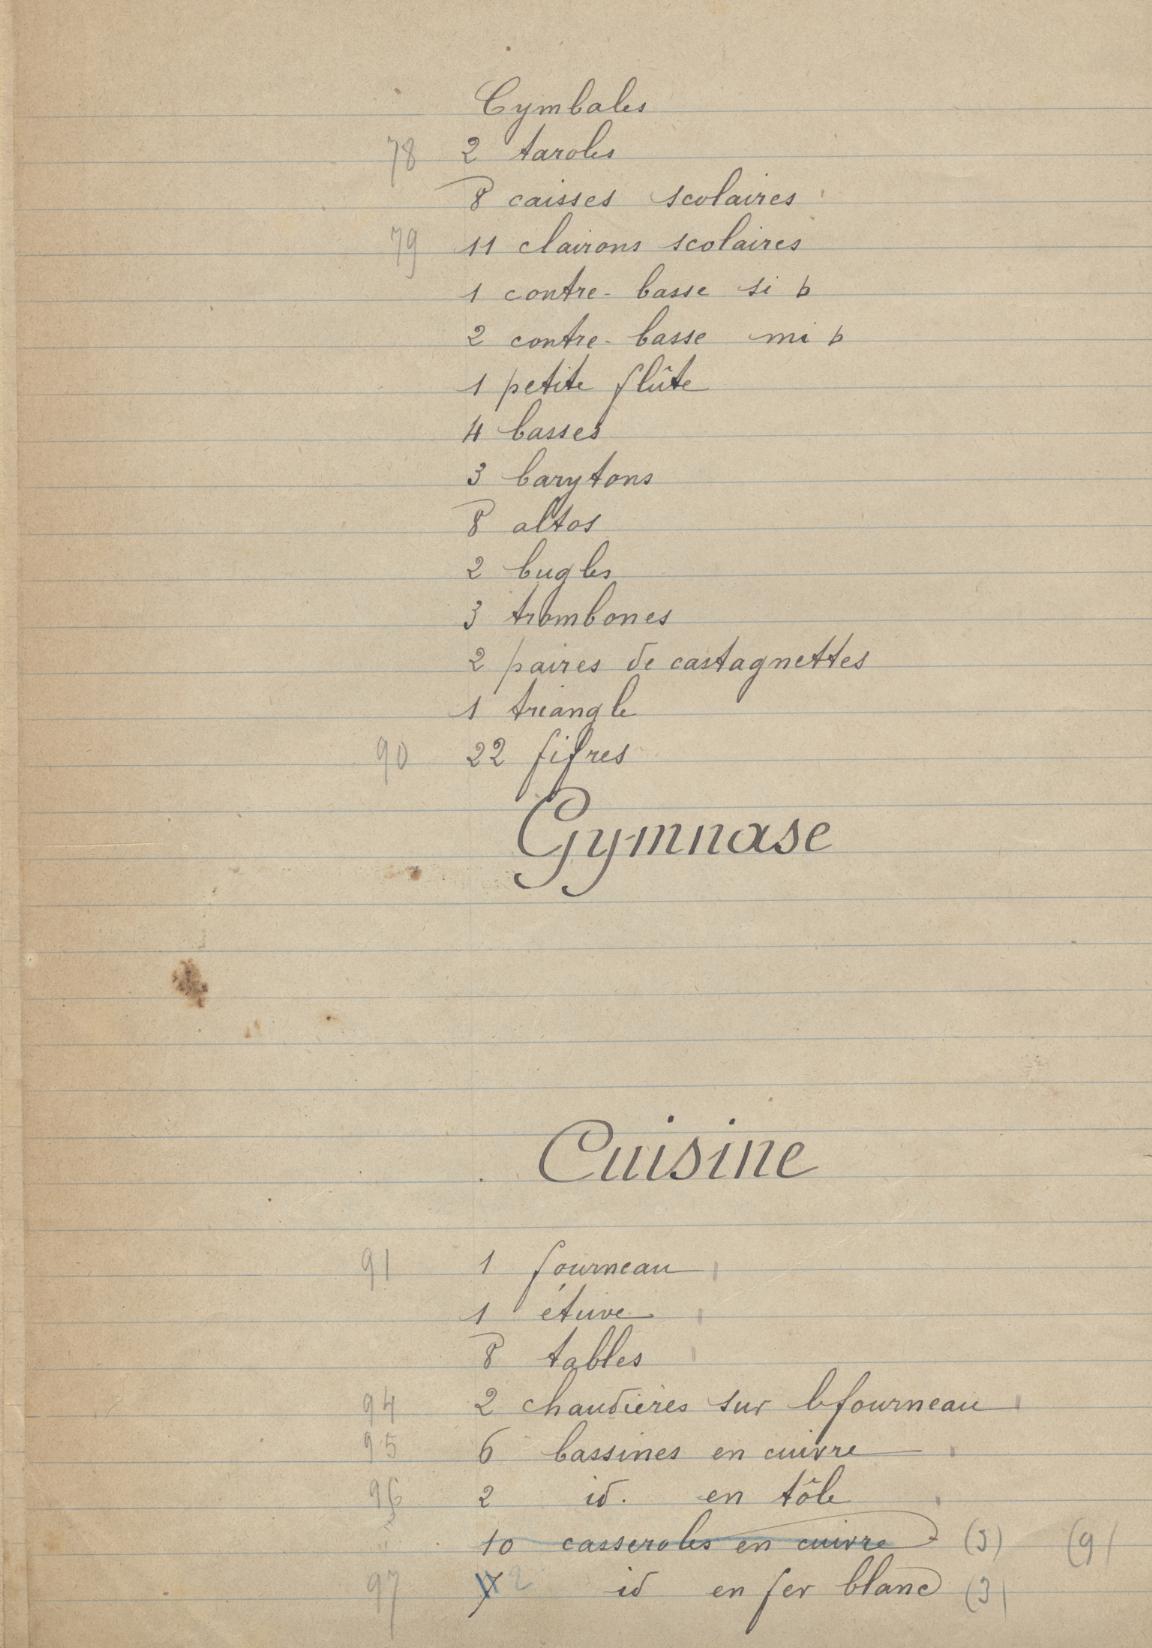 Cymbales
78 2 taroles
8 caisses scolaires
79 11 clairons scolaires
1 contre-basse si b
2 contre-basse mi b
1 petite flûte
4 basses
3 barytons
8 altos
2 bugles
3 trombones
2 paires de castagnettes
1 triangle
90 22 fifres
Gymnase
Cuisine
91 1 fourneau
1 étuve
8 tables
94 2 chaudières sur le fourneau
95 6 bassines en cuivre
96 2 id. en tôle
10 casseroles en cuivre (5) (9)
97 7 2 id en fer blanc (3)